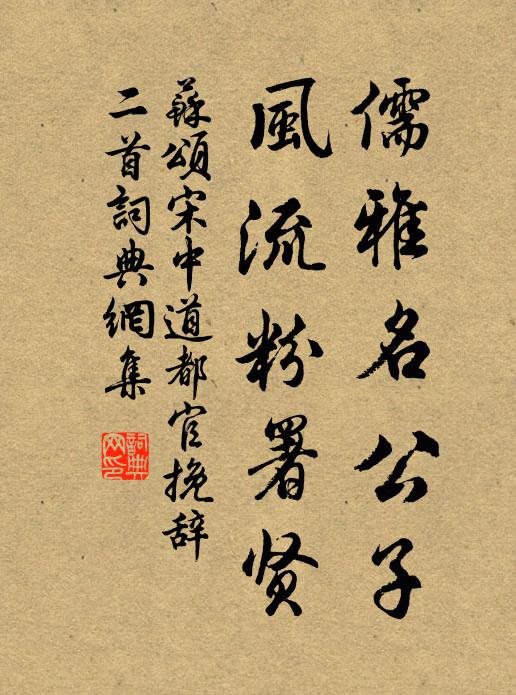 儒雅名公子
風流粉署贤
蘇頌宋中道都官挽辞
二首詞典網集
詞典網印